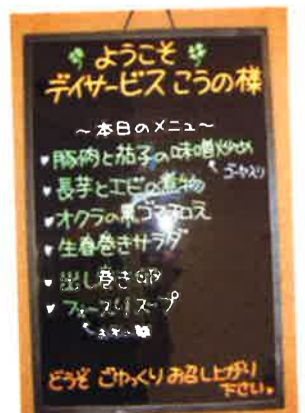 ようこそ
デイサービス こうの様
~本日のメニュー~
豚肉と茄子の味噌炒め
ゴーヤ入り
長芋とエビの煮物
オクラの黒ゴマ和え
生春巻きサラダ
出し巻き卵
スープ
どうぞ ごゆっくり お召し上がり
下さい。